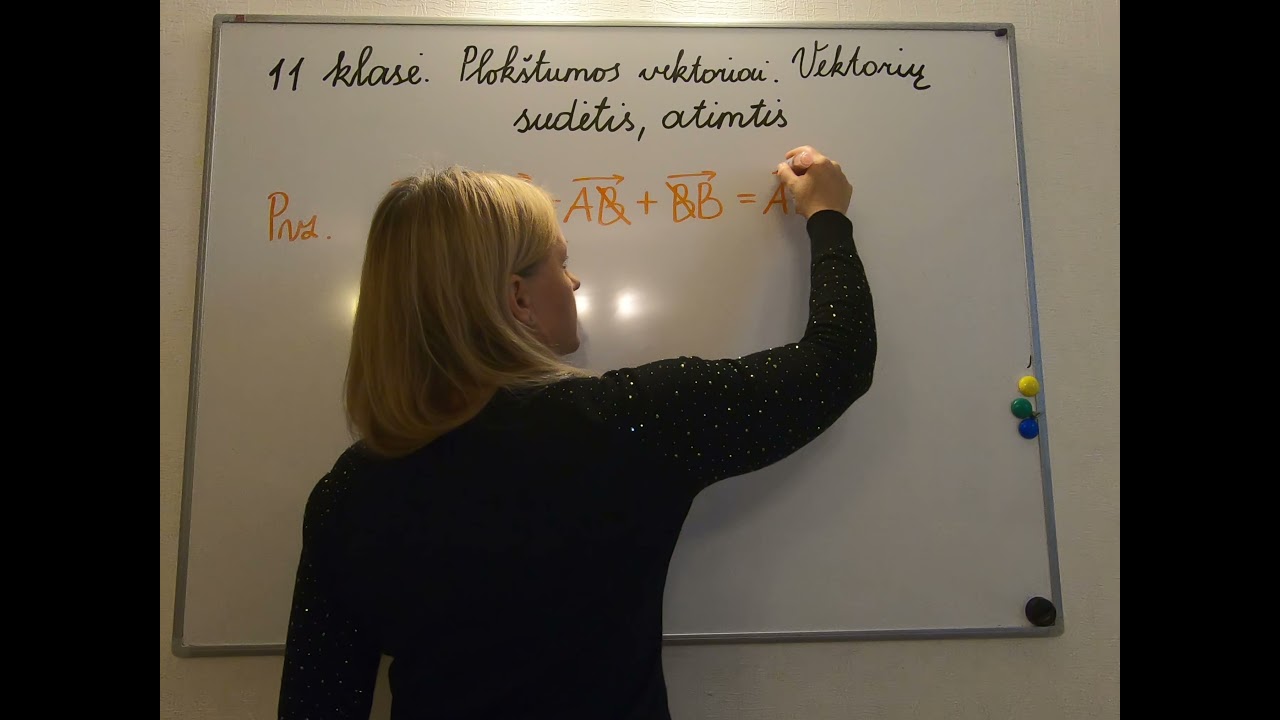 11 klasė. Plokštumos vektoriai. Vektorių
sudėtis, atimtis
Pvz. AB + BB = A